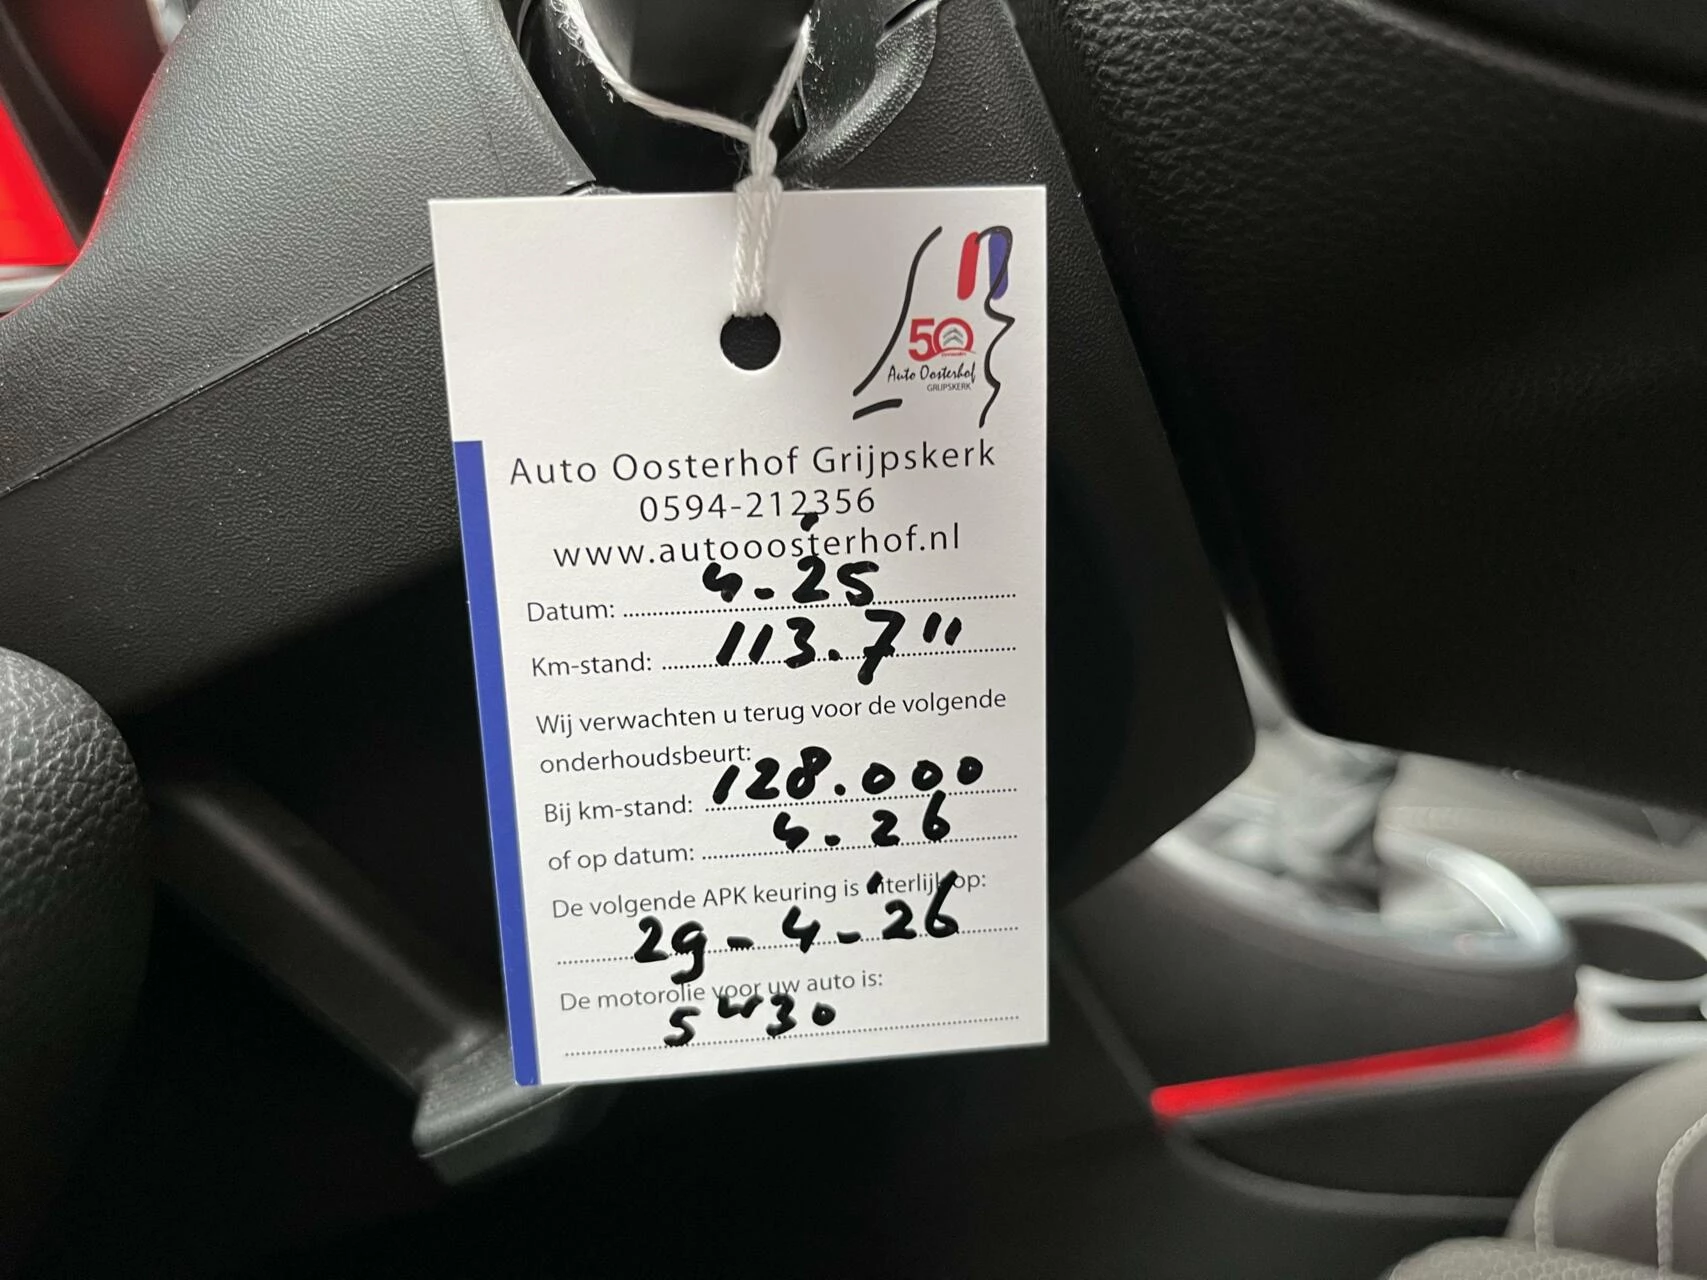 50
Auto Oosterhof
GRIJPSKERK
Auto Oosterhof Grijpskerk
0594-212356
www.autooosterhof.nl
Datum: 4.25
Km-stand: 113.7"
Wij verwachten u terug voor de volgende
onderhoudsbeurt:
Bij km-stand: 128.000
of op datum: 4.26
De volgende APK keuring is uiterlijk op:
29-4-26
De motorolie voor uw auto is:
5W30